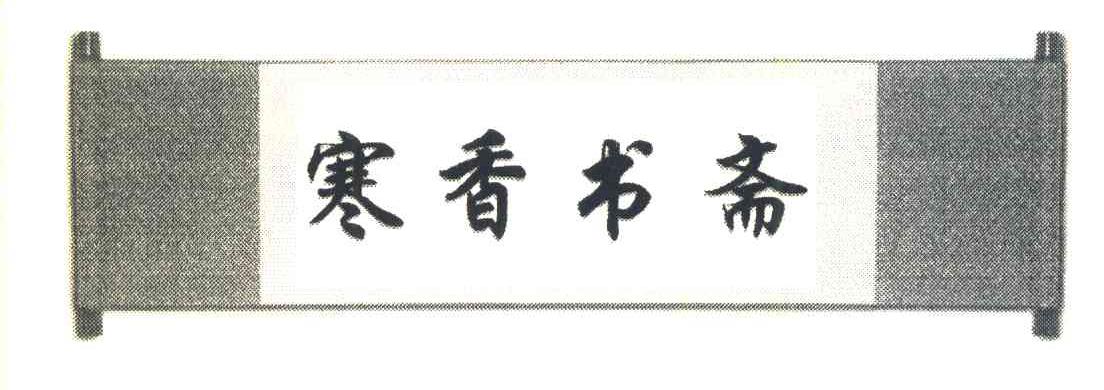 寒香书斋